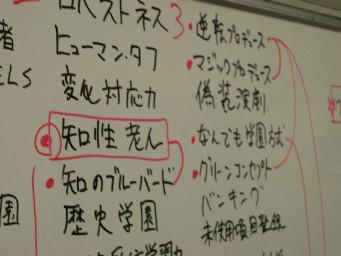 ロバストネス
ヒューマン・タフ
変化対応力
知性老人
知のブルーバード
歴史学園
逆転プロデュース
マジックプロデュース
偽装演劇
なんでも学園方式
グリーンコンセプト
バンキング
未使用項目登録
者
ELS
園
3